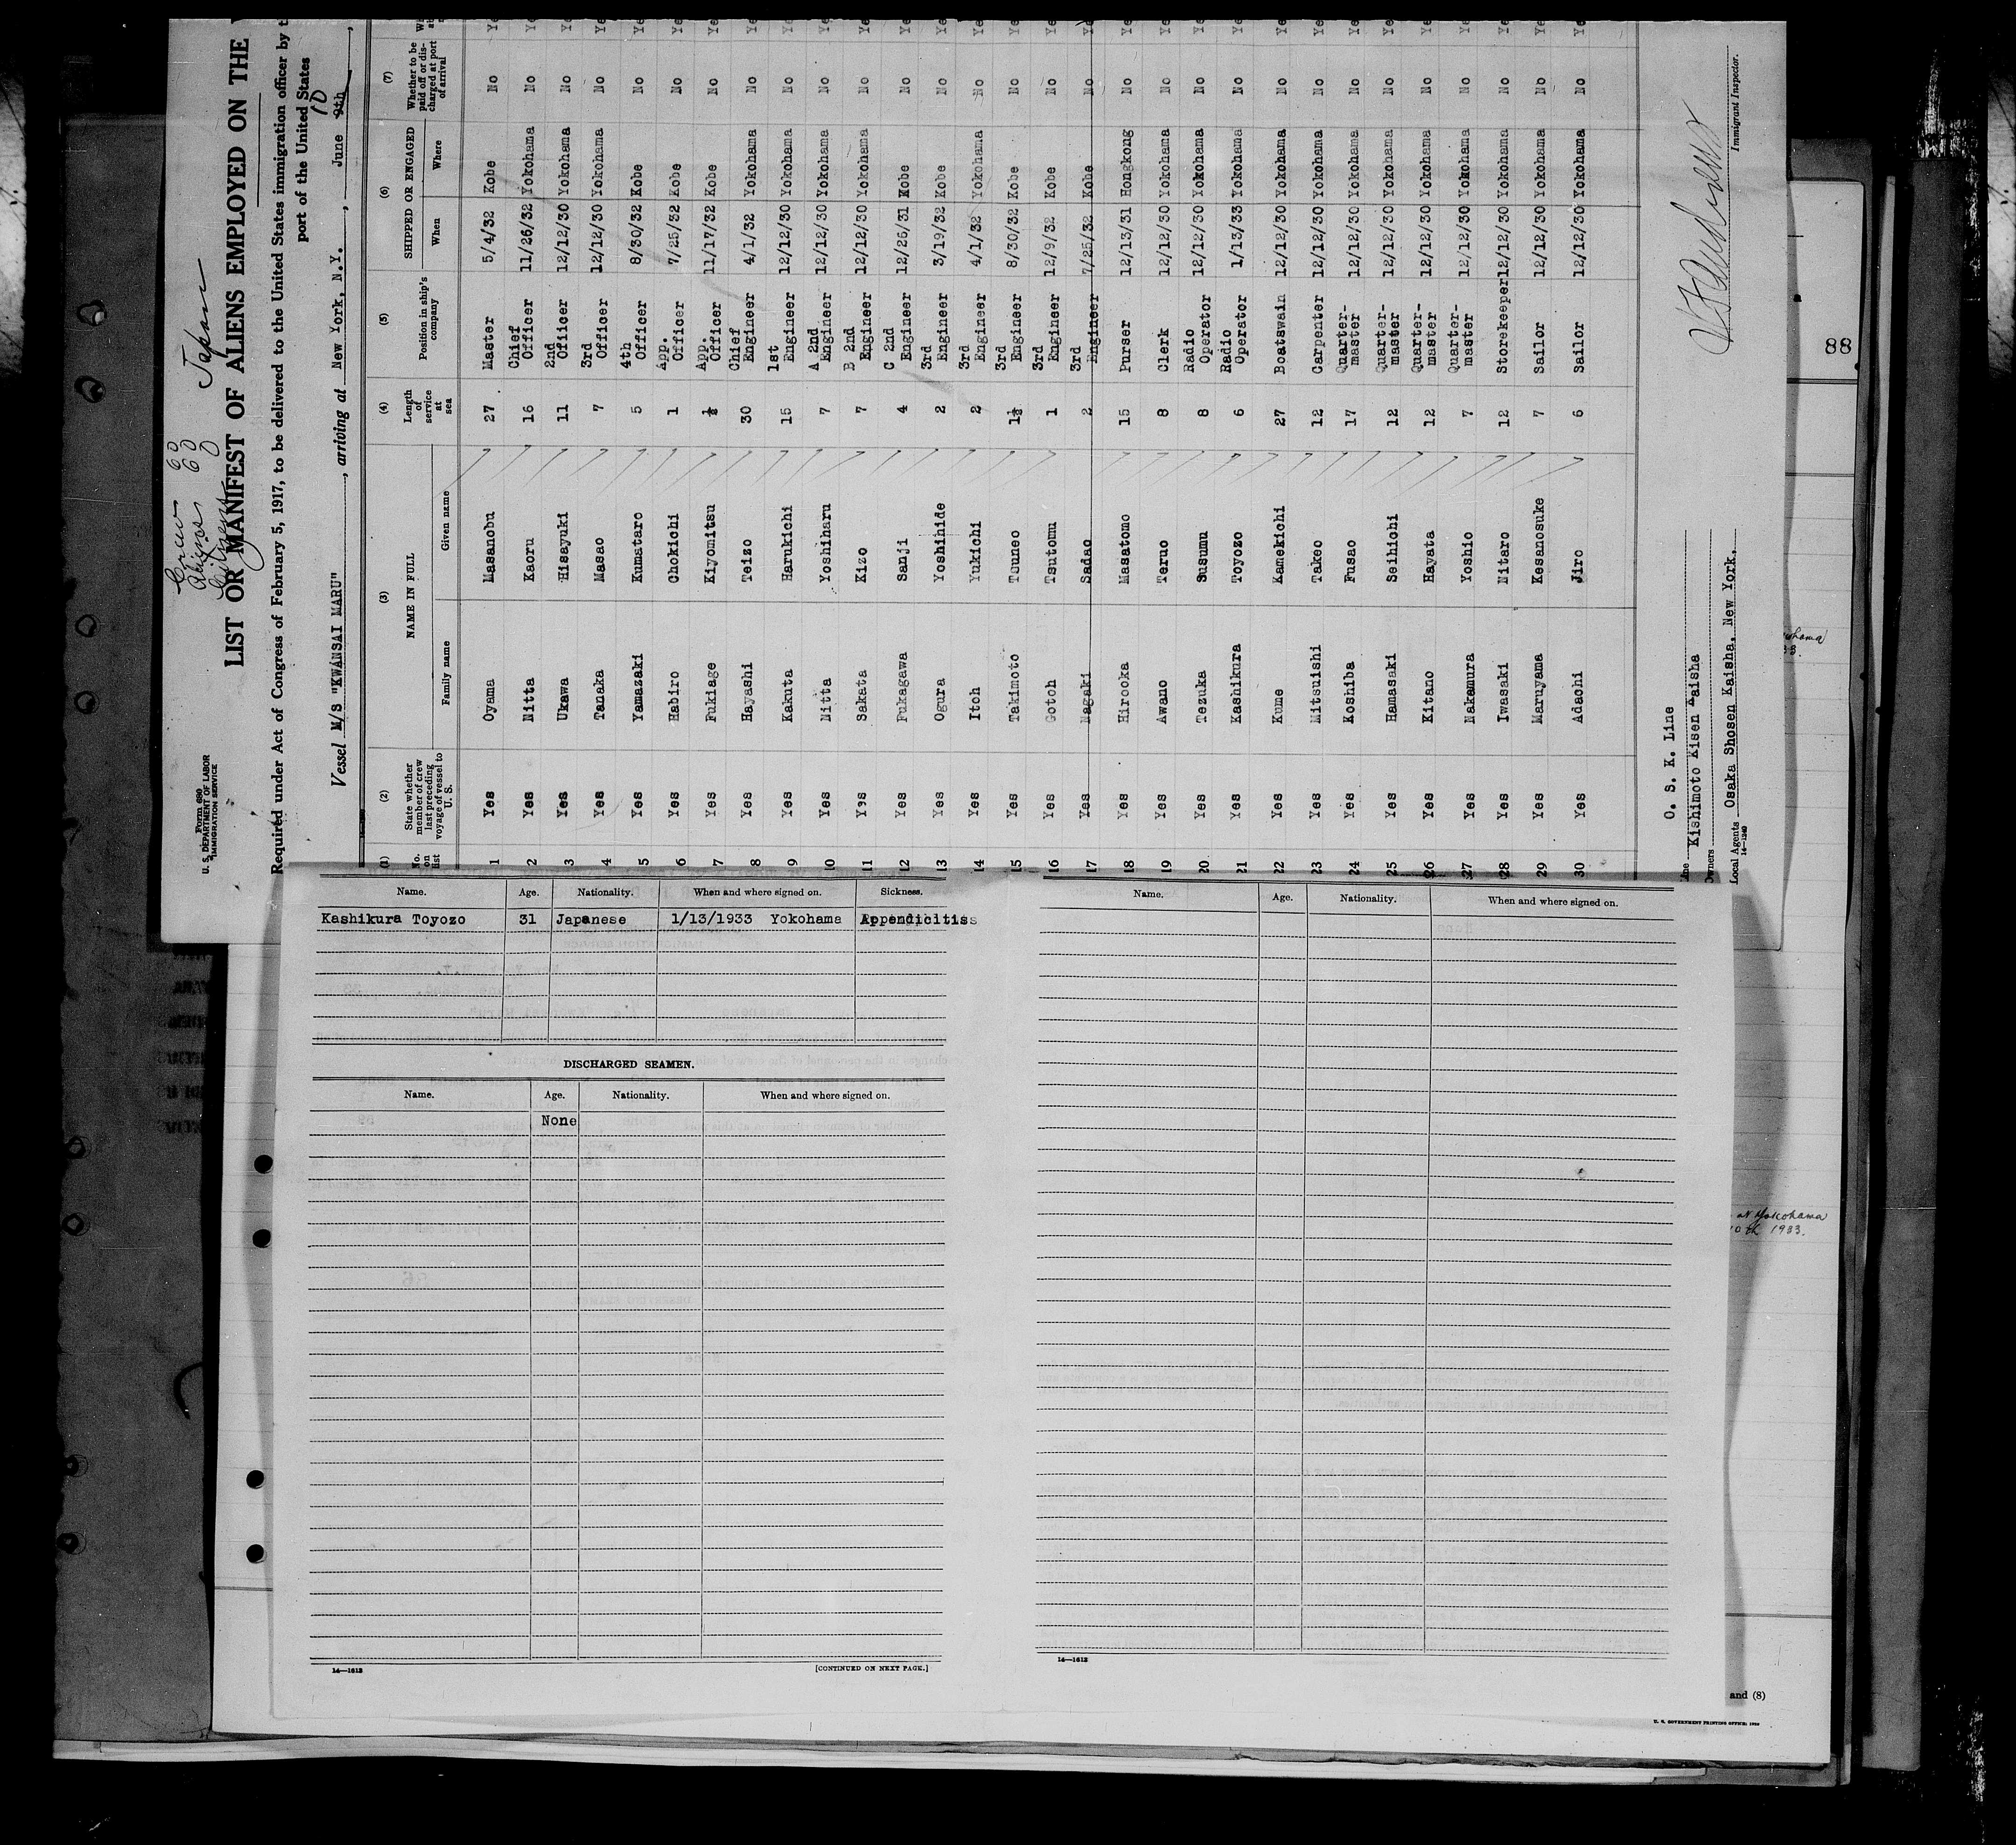 Form 680
U. S. DEPARTMENT OF LABOR
IMMIGRATION SERVICE
Crew 60
Aliens 60
Citizens 0
Japan
LIST OR MANIFEST OF ALIENS EMPLOYED ON THE
Required under Act of Congress of February 5, 1917, to be delivered to the United States immigration officer by t
port of the United States
Vessel M/S "KWANSAI MARU", arriving at New York, N.Y., June 9th 10,
(1) No. on list
(2) State whether member of crew last preceding voyage of vessel to U. S.
(3) NAME IN FULL
Family name Given name
(4) Length of service at sea
(5) Position in ship's company
(6) SHIPPED OR ENGAGED
When Where
(7) Whether to be paid off or discharged at port of arrival
1 Yes Oyama Masanobu 27 Master 5/4/32 Kobe No Ye
2 Yes Nitta Kaoru 16 Chief Officer 11/26/32 Yokohama No Ye
3 Yes Ukawa Hisayuki 11 2nd Officer 12/12/30 Yokohama No Ye
4 Yes Tanaka Masao 7 3rd Officer 12/12/30 Yokohama No Ye
5 Yes Yamazaki Kumataro 5 4th Officer 8/30/32 Kobe No Ye
6 Yes Habiro Chokichi 1 App. Officer 7/25/32 Kobe No Ye
7 Yes Fukiage Kiyomitsu ½ App. Officer 11/17/32 Kobe No Ye
8 Yes Hayashi Teizo 30 Chief Engineer 4/1/32 Yokohama No Ye
9 Yes Kakuta Harukichi 15 1st Engineer 12/12/30 Yokohama No Ye
10 Yes Nitta Yoshiharu 7 A 2nd Engineer 12/12/30 Yokohama No Ye
11 Yes Sakata Kizo 7 B 2nd Engineer 12/12/30 Yokohama No Ye
12 Yes Fukagawa Sanji 4 C 2nd Engineer 12/26/31 Kobe No Ye
13 Yes Ogura Yoshihide 2 3rd Engineer 3/19/32 Kobe No Ye
14 Yes Itoh Yukichi 2 3rd Engineer 4/1/32 Yokohama No Ye
15 Yes Takimoto Tsuneo 1½ 3rd Engineer 8/30/32 Kobe No Ye
16 Yes Gotoh Tsutomu 1 3rd Engineer 12/9/32 Kobe No Ye
17 Yes Nagaki Sadao 2 3rd Engineer 7/25/32 Kobe No Ye
18 Yes Hirooka Masatomo 15 Purser 12/13/31 Hongkong No Ye
19 Yes Awano Teruo 8 Clerk 12/12/30 Yokohama No Ye
20 Yes Tezuka Susumu 8 Radio Operator 12/12/30 Yokohama No Ye
21 Yes Kashikura Toyozo 6 Radio Operator 1/13/33 Yokohama No Ye
22 Yes Kume Kamekichi 27 Boatswain 12/12/30 Yokohama No Ye
23 Yes Mitsuishi Takeo 12 Carpenter 12/12/30 Yokohama No Ye
24 Yes Koshiba Fusao 17 Quarter-master 12/12/30 Yokohama No Ye
25 Yes Hamasaki Seihichi 12 Quarter-master 12/12/30 Yokohama No Ye
26 Yes Kitano Hayata 12 Quarter-master 12/12/30 Yokohama No Ye
27 Yes Nakamura Yoshio 7 Quarter-master 12/12/30 Yokohama No Ye
28 Yes Iwasaki Nitaro 12 Storekeeper 12/12/30 Yokohama No Ye
29 Yes Maruyama Kesanosuke 7 Sailor 12/12/30 Yokohama No Ye
30 Yes Adachi Jiro 6 Sailor 12/12/30 Yokohama No Ye
O. S. K. Line
Line Kishimoto Kisen Kaisha
Owners
Local Agents Osaka Shosen Kaisha, New York,
14-1240
Immigrant Inspector.
88
Name. Age. Nationality. When and where signed on. Sickness.
Kashikura Toyozo 31 Japanese 1/13/1933 Yokohama Appendicitis
DISCHARGED SEAMEN.
Name. Age. Nationality. When and where signed on.
None
14—1613
[CONTINUED ON NEXT PAGE.]
Name. Age. Nationality. When and where signed on.
14—1613
at Yokohama
0th 1933.
and (8)
U. S. GOVERNMENT PRINTING OFFICE: